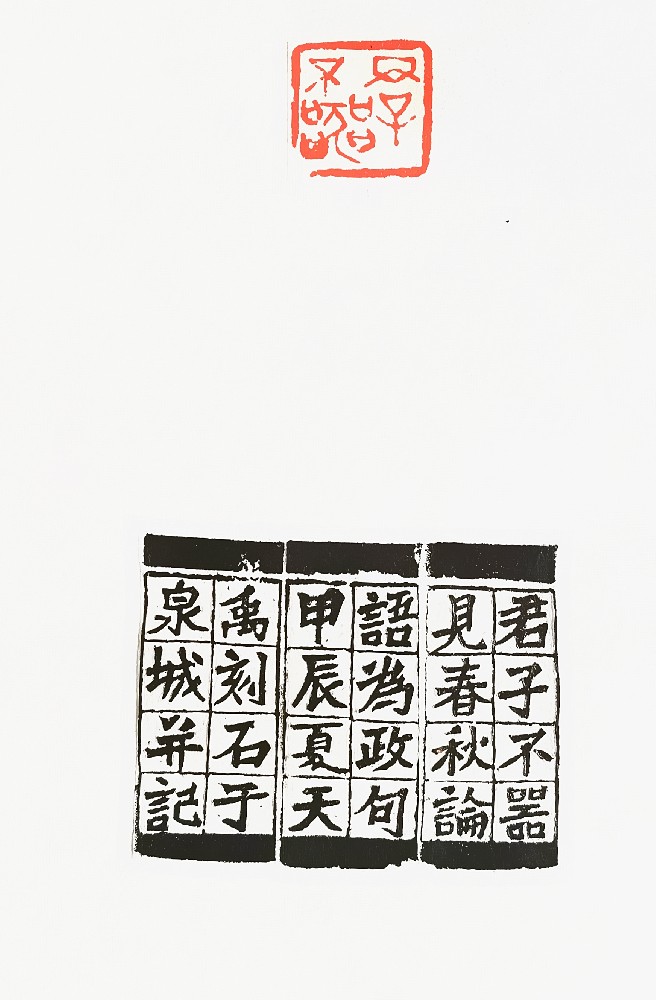 君子
不器
君子不器
見春秋論
語為政句
甲辰夏天
禹刻石于
泉城并記